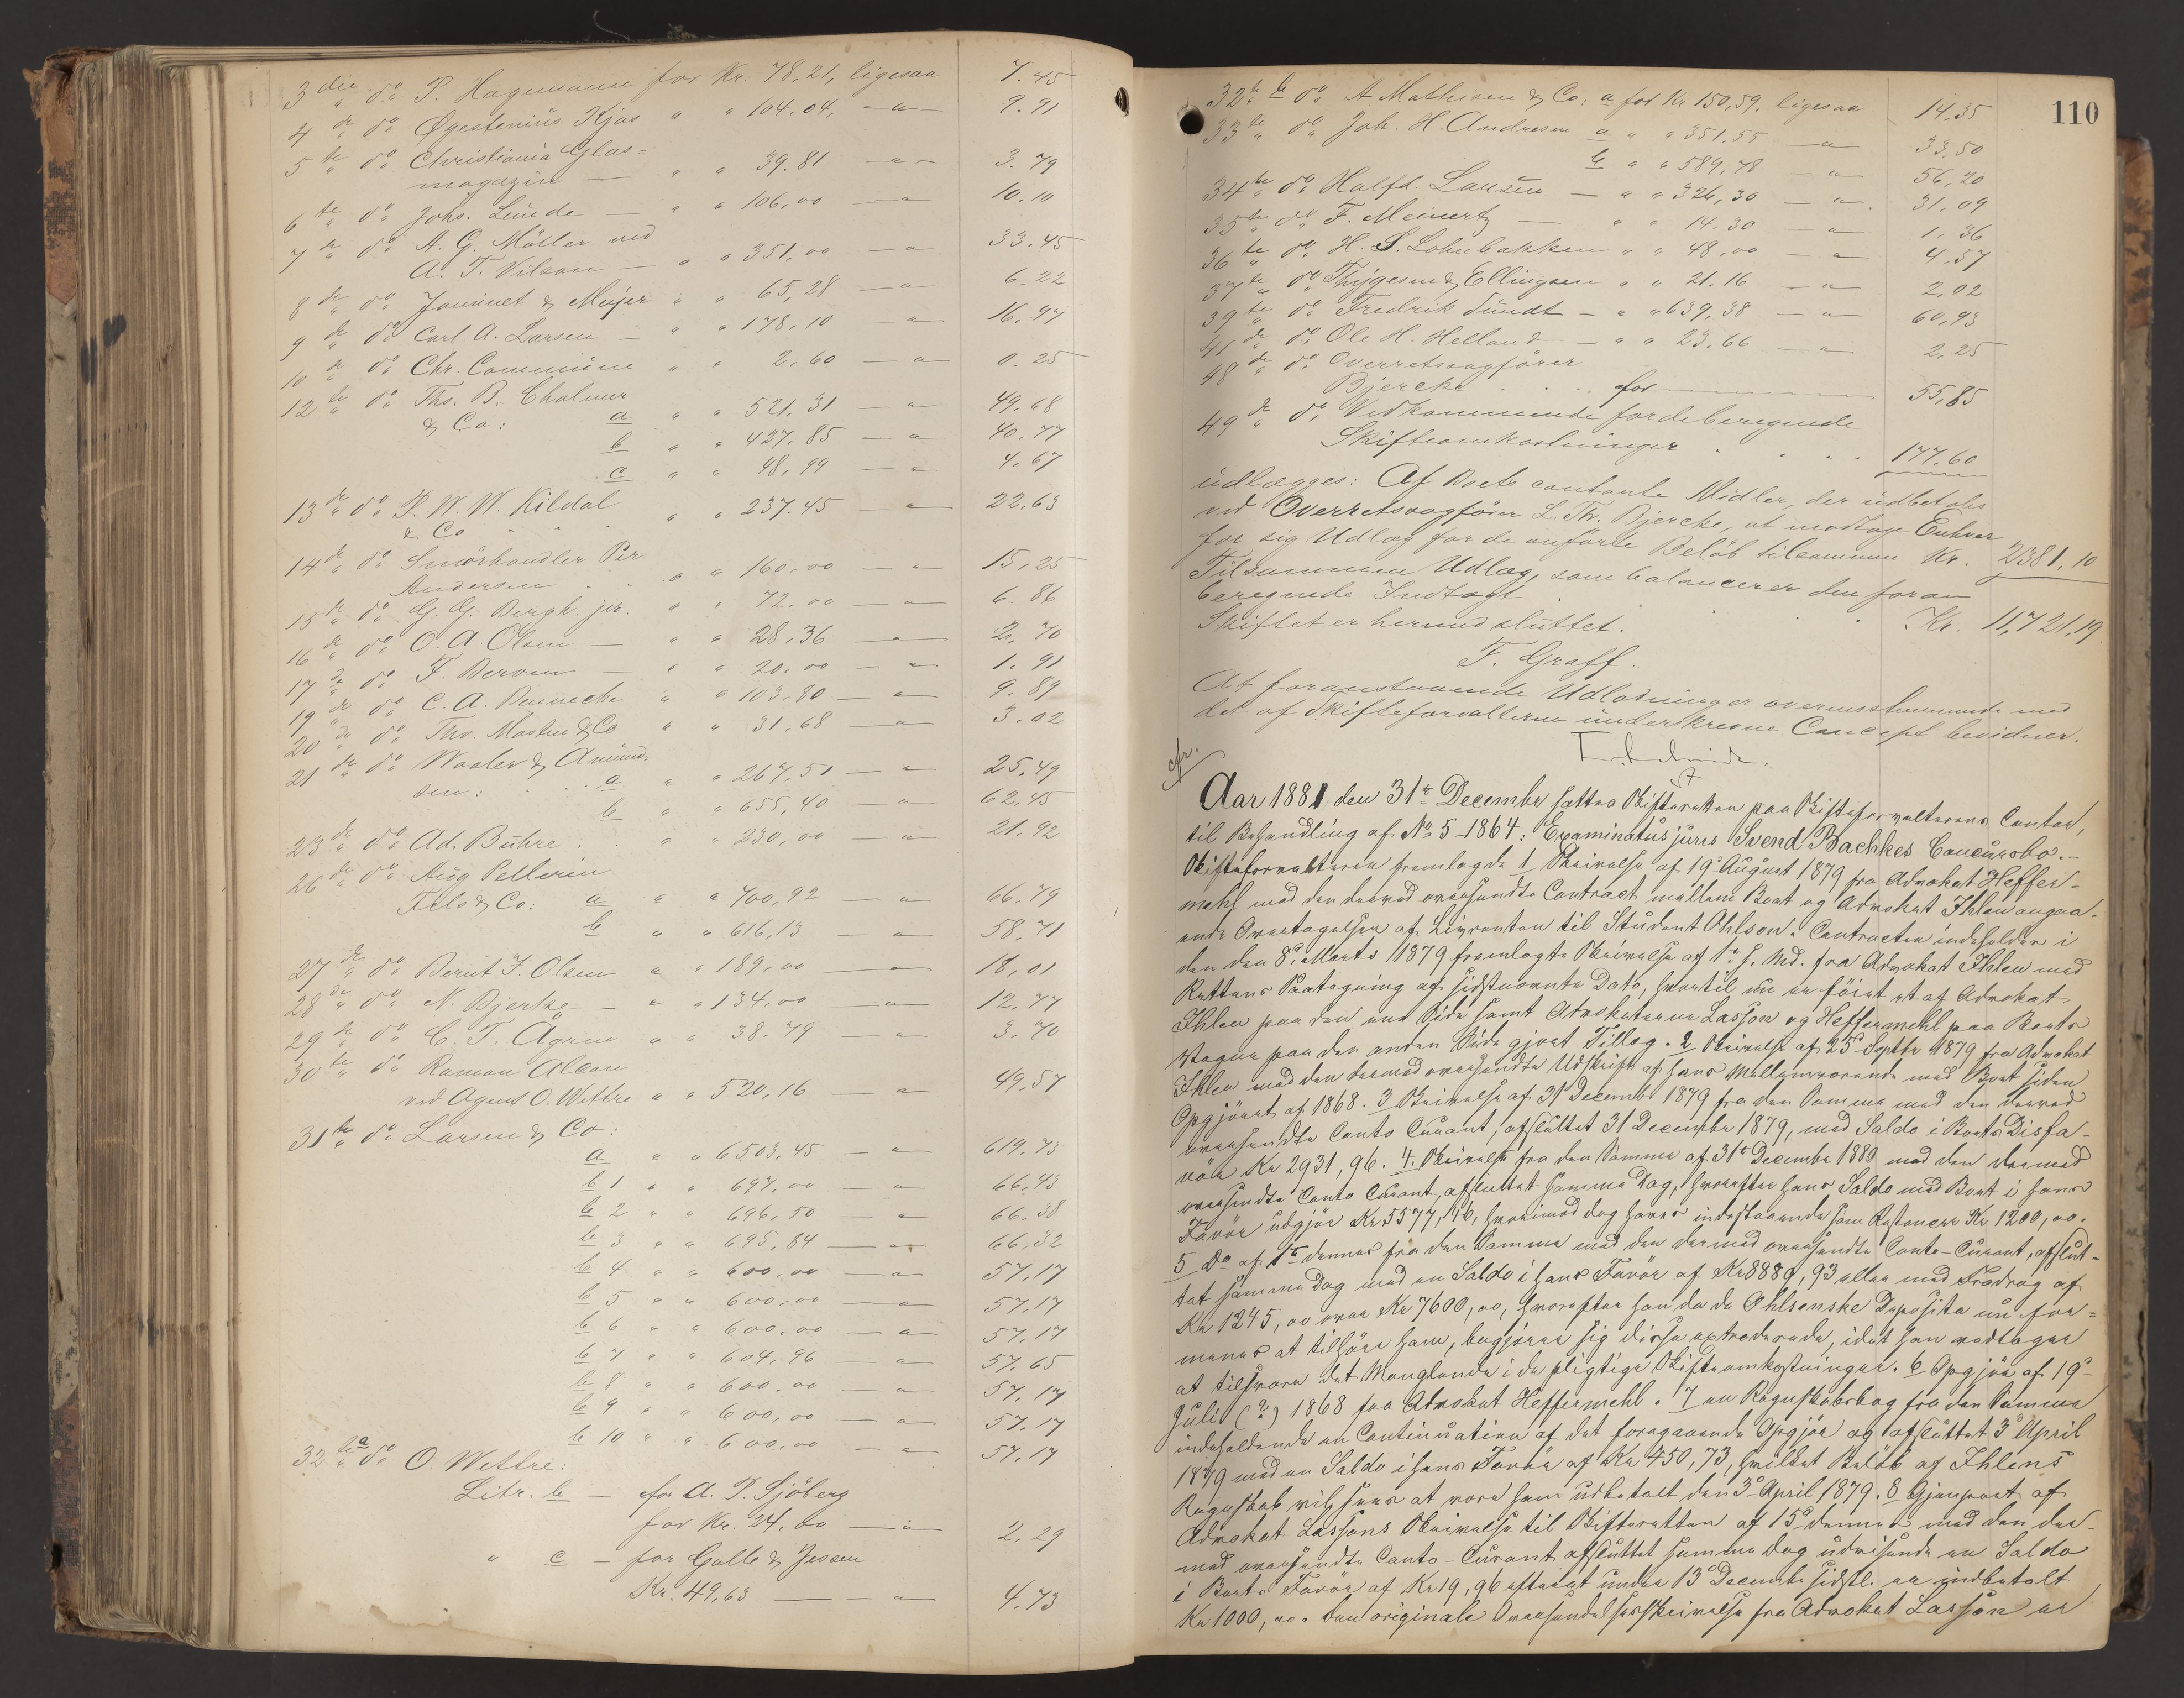 3die do P. Hagemann for Kr. 78.21, ligesaa 7.45
4de do Øgestenius Kjos " " 104.04, — " — 9.91
5te do Christiania Glas=
magazin — " " 39.81 — " — 3.79
6te do Johs. Lunde — " " 106,00 — " — 10.10
7de do A. G. Möller ved
A. T. Nilsen — " " 351,00 — " — 33.45
8de do Jaminet & Meijer " " 65,28 — " — 6.22
9de do Carl. A. Larsen — " " 178,10 — " — 16.97
10de do Chr. Commune " " 2,60 — " — 0.25
12te do Ths. B. Chalmer
& Co: a " " 521,31 — " — 49.68
b " " 427,85 — " — 40.77
c " " 48,99 — " — 4.67
13de do P. W. W. Kildal
& Co " " 237.45 — " — 22.63
14de do Smörhandler Per
Andersen . . " " 160,00 — " — 15,25
15de do G. G. Bergh. jr. " " 72.00 — " — 6.86
16de do O. A. Olsen — " " 28,36 — " — 2,70
17de do F. Berven — " " 20.00 — " — 1.91
19de do C. A. Bennecke " " 103.80 — " — 9.89
20de do Thv. Mostue & Co " " 31,68 — " — 3.02
21de do Waaler & Amund=
sen: . . a " " 267,51 — " — 25,49
b " " 655,40 — " — 62,45
23de do Ad. Buhre . . " " 230,00 — " — 21.92
26de do Aug Pellerin
Fils & Co: a " " 700,92 — " — 66.79
b " " 616,13 — " — 58.71
27de do Bernt J. Olsen " " 189,00 — " — 18,01
28de do N. Bjerke — " " 134,00 — " — 12.77
29de do C. T. Agren " " 38.79 — " — 3.70
30te do Ramon Alcon
ved Agent O. Wettre " " 520,16 — " — 49,57
31te do Larsen & Co:
a " " 6503,45 — " — 619.73
b 1 " " 697,00 — " — 66,43
b 2 " " 696,50 — " — 66.38
b 3 " " 695,84 — " — 66,32
b 4 " " 600,00 — " — 57,17
b 5 " " 600,00 — " — 57.17
b 6 " " 600,00 — " — 57.17
b 7 " " 604,96 — " — 57.65
b 8 " " 600.00 — " — 57.17
b 9 " " 600,00 — " — 57.17
b 10 " " 600,00 — " — 57.17
32te a do O. Wettre:
Litr. b — for A. P. Sjöberg
for Kr. 24,00 — " — 2,29
" c — for Galle & Jessen
Kr. 49,63 — — " — 4.73
110
32te b do A Mathisen & Co: a for Kr 150,59. ligesaa 14.35
33te do Joh. H. Andresen a " " 351.55 — " — 33,50
b " " 589,78 — " — 56,20
34te do Halfd. Larsen — " " 326,30 — " — 31,09
35te do F. Meinertz — " " 14.30 — " — 1.36
36te do H. S. Lohnbakken " " 48,00 — " — 4.57
37te do Thygesen & Ellingsen " " 21.16 — " — 2,02
39te do Fredrik Sundt — " " 639,38 — " — 60,93
41de do Ole H. Helland — " " 23.66 — " — 2,25
48de do Overretssagfører
Bjercke . . . for — 55,85
49de do Vedkommende for de beregnede
Skifteomkostninger . . . . 177,60
udlægges: Af Boets contante Midler, der udbetales
ved Overretssagförer L. Th. Bjercke, at modtage Enhver
for sig Udlæg for de anförte Belöb tilsammen Kr. 2381.10
Tilsammen Udlæg, som balancerer den foran
beregnede Indtægt . . . Kr. 11,721,19
Skiftet er hermed sluttet.
F. Graff.
At foranstaaende Udlodninger overensstemmende med
det af Skifteforvalteren underskrevne Concept bevidner.
Aar 1881 den 31te December sattes Skifteretten paa Skifteforvalterens Contor,
til Behandling af No 5-1864: Examinatus juris Svend Bachkes Concursbo.-
Skifteforvalteren fremlagde 1 Skrivelse af 19de August 1879 fra Advokat Heffer-
mehl med den derved oversendte Contract mellem Boet og Advokat Ihlen angaa-
ende Overtagelsen af Livrenten til Student Ohlson. Contracten indeholder i
den den 8de Marts 1879 fremlagte Skrivelse af 1ste s. Md. fra Advokat Ihlen med
Rettens Paategning af sidstnævnte Dato, hvortil nu er föiet et af Advokat
Ihlen paa den ene Side samt Advokaterne Lasson og Heffermehl paa Boets
Vegne paa den anden Side gjort Tillæg. 2 Skrivelse af 25de Septbr 1879 fra Advokat
Ihlen med den dermed oversendte Udskrift af hans Mellemværende med Boet siden
Opgjöret af 1868. 3 Skrivelse af 31te Decembr 1879 fra den Samme med den derved
oversendte Conto Curant, afsluttet 31 December 1879, med Saldo i Boets Disfa-
vör Kr 2931,96. 4. Skrivelse fra den Samme af 31te December 1880 med den dermed
oversendte Conto Curant, afsluttet samme Dag, hvorefter hans Saldo med Boet i hans
Favör udgjör Kr 5577,46, hvorimod dog haves indestaaende som Restancer Kr 1200,00.
5 Do af 1ste dennes fra den Samme med den dermed oversendte Conto-Curant, afslut-
tet samme Dag med en Saldo i hans Favör af Kr 8889,93 eller med Fradrag af
Kr 1245,00 over Kr 7600,00, hvorefter han da de Ohlsenske Deposita nu for-
menes at tilhöre ham, begjærer sig disse extraderede, idet han vedtager
at tilsvare det Manglende i de pligtige Skifteomkostninger. 6 Opgjör af 19de
Juli (?) 1868 fra Advokat Heffermehl. 7 en Regnskabsbog fra den Samme
indeholdende en Continuation af det foregaaende Opgjör og afsluttet 3de April
1879 med en Saldo i hans Favör af Kr 450,73, hvilket Belöb af Ihlens
Regnskab vil sees at være ham udbetalt den 3de April 1879. 8 Gjenpart af
Advokat Lassons Skrivelse til Skifteretten af 15de dennes med den der-
med oversendte Conto-Curant afsluttet samme Dag udvisende en Saldo
i Boets Favör af Kr 19,96 efterat under 13de December sidstl. er indbetalt
Kr 1000,00. Den originale Oversendelsesskrivelse fra Advokat Lasson er